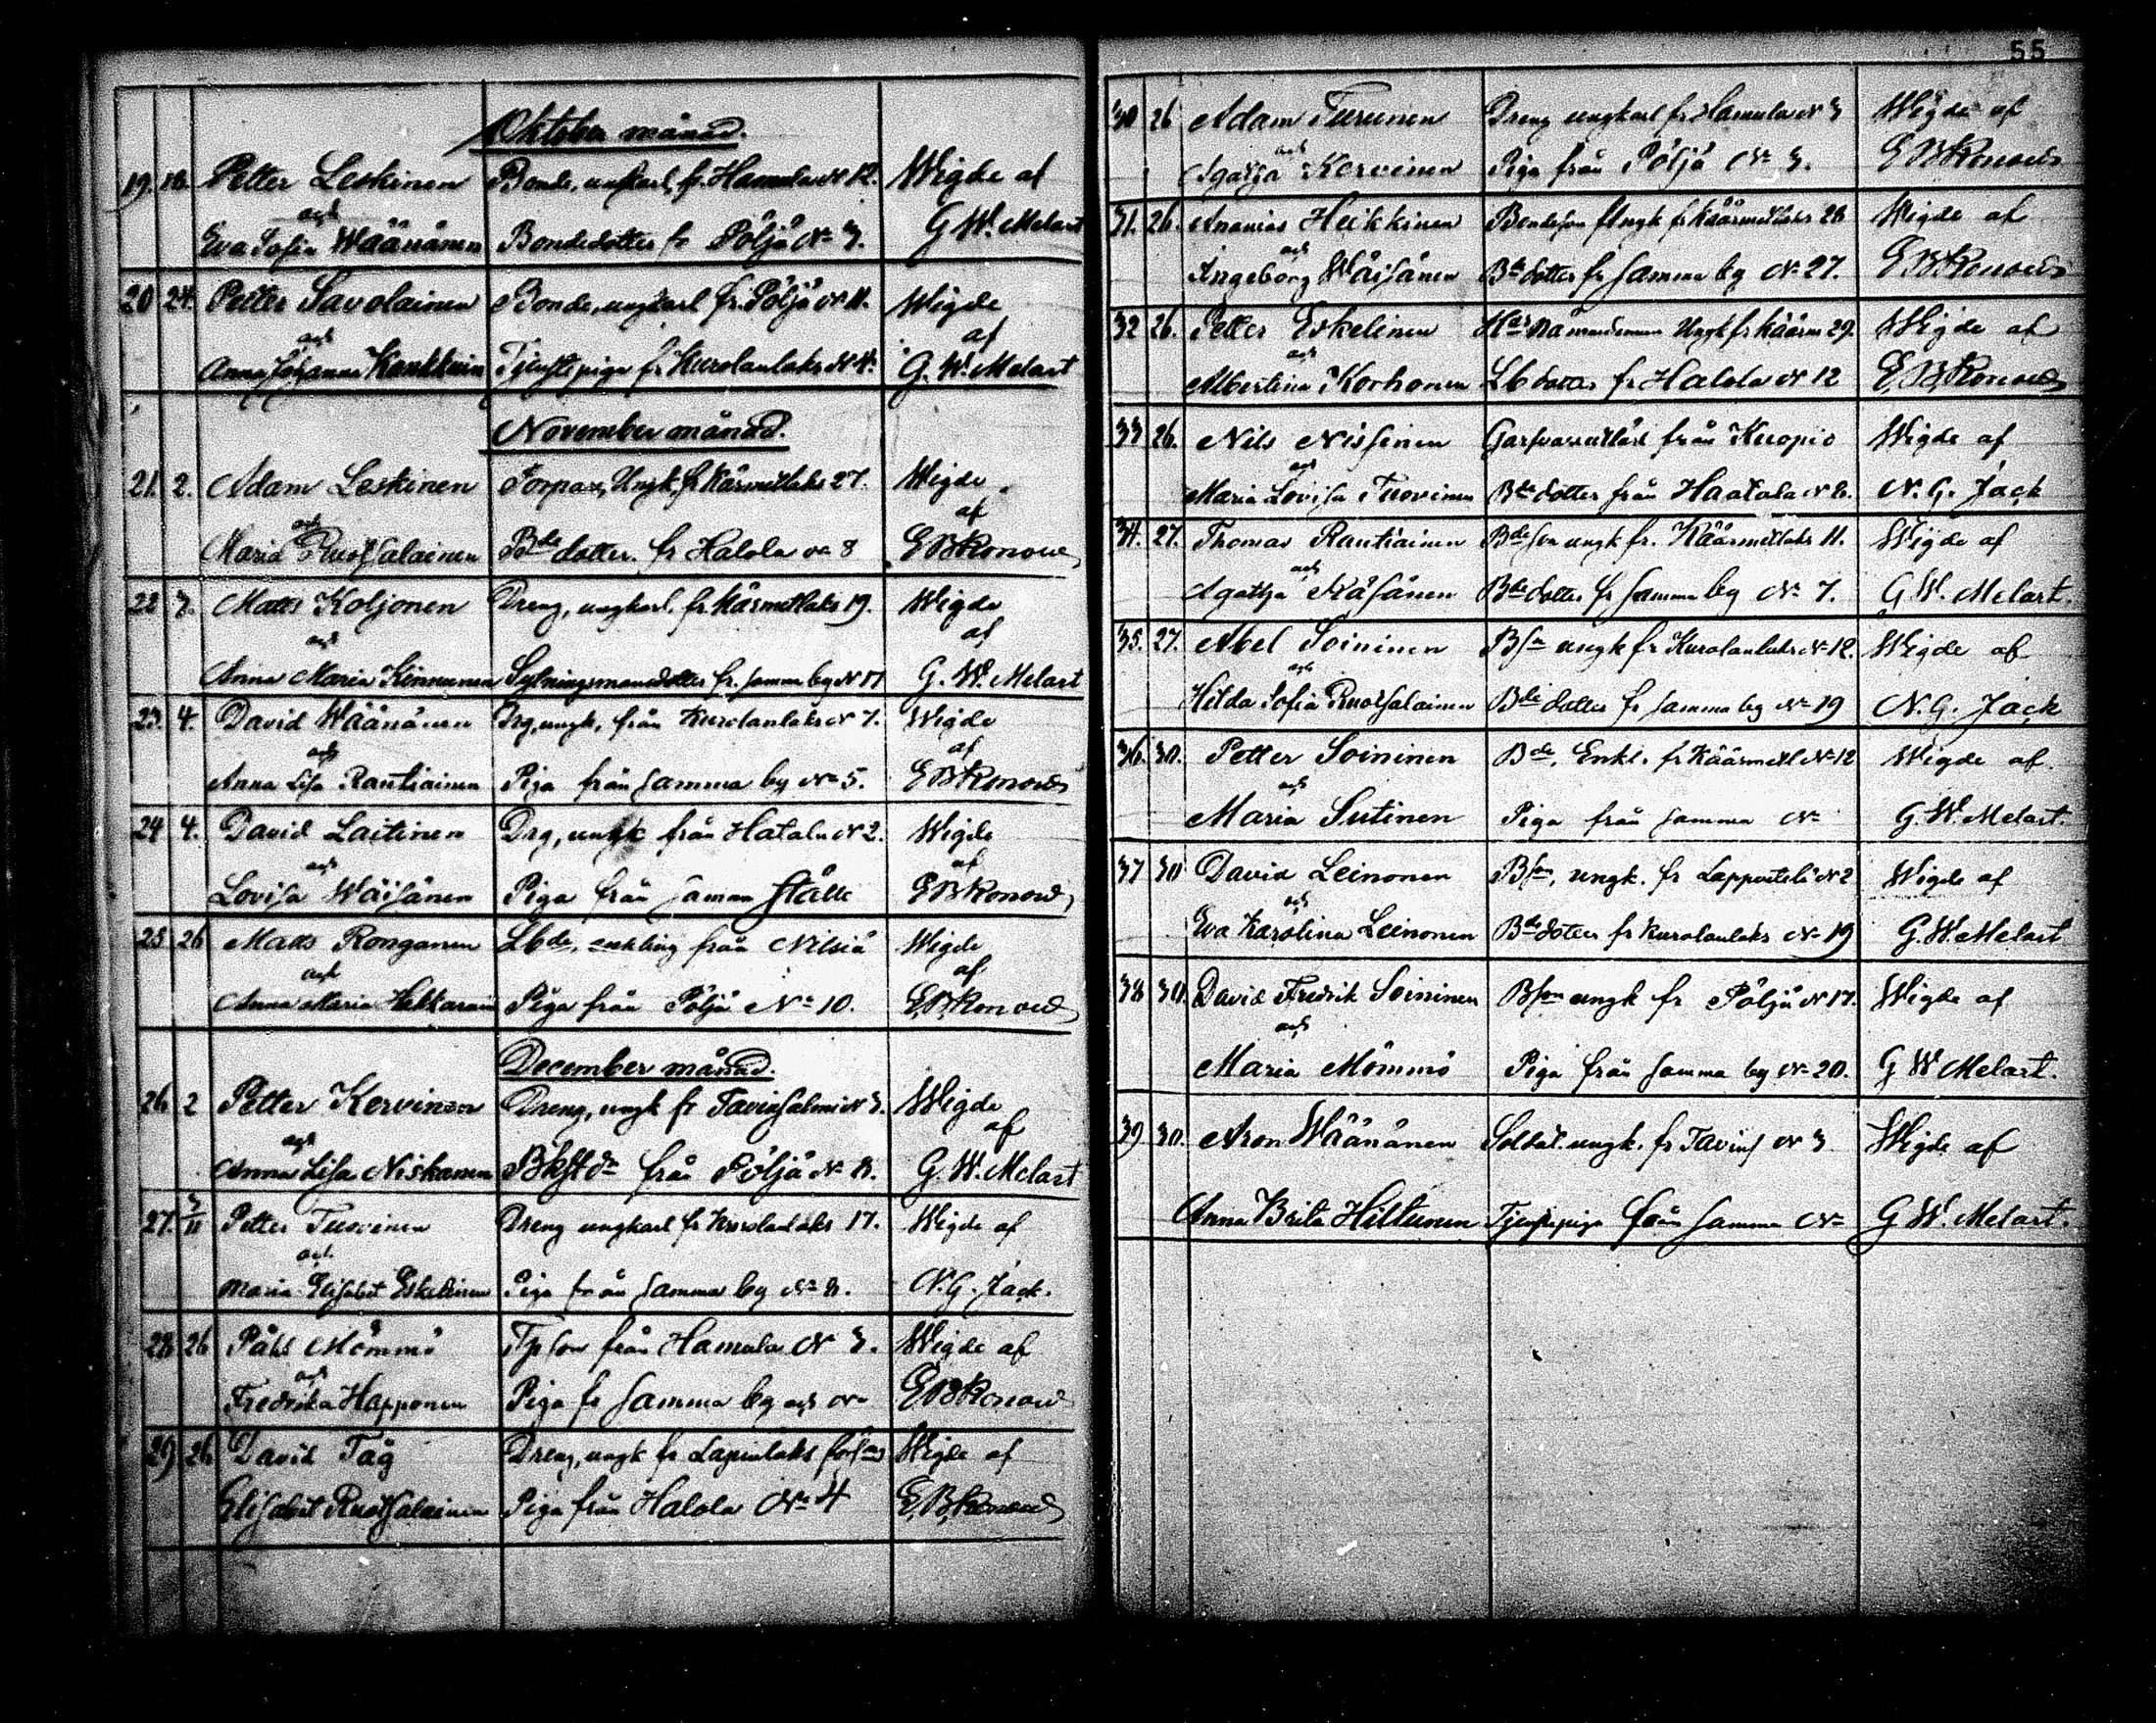 55
Oktober månad.
19. 10. Petter Leskinen Bonde, ungkarl, fr. Hamula N 12. Wigde af
och
Eva Sofia Wäänänen Bondedotter fr Pöljä No 3. G W. Melart
20 24. Petter Savolainen Bonde, ungkarl fr. Pöljä N 11. Wigde
och af
Anna Johanna Tjenstepiga fr Kurolanlaks N 4. G. W. Melart
November månad.
21. 2. Adam Leskinen Torpare, Ungk. fr Käsmetlaks 27. Wigde
och af
Maria Ruotsalainen Bde dotter. fr Halola No 8 E B Konow
22 3. Matts Koljonen Dreng, ungkarl. fr. Käsmetlaks 19. Wigde
och af
Anna Maria Kinnunen Sytningsmansdotter fr. samma by N 17 G. W. Melart
23. 4. David Wäänänen Drg, ungk, från Kurolanlaks N 7. Wigde
och af
Anna Lisa Rautiainen Piga från samma by No 5. E B Konow
24 4. David Laitinen Drg, ungk från Hatala N 2. Wigde
och af
Lovisa Wäisänen Piga från samma ställe E B Konow
25 26 Matts Ronganen Lbde, enkling från Nilsiä Wigde
och af
Anna Maria Piga från Pöljä No 10. E. B. Konow
December månad.
26. 2 Petter Kervinen Dreng, ungk fr Tavinsalmi N 3. Wigde
och af
Anna Lisa Niskanen från Pöljä No 8. G. W. Melart
27. 3/11 Petter Tuovinen Dreng ungkarl fr Kurolanlaks 17. Wigde af
och
Maria Elisabet Eskelinen Piga från samma by No 8. N. G. Jack.
28 26 Påhl Mömmö Tpson från Hamula N 3. Wigde af
och
Fredrika Happonen Piga fr samma by och No E B Konow
29 26 David Tåg Dreng, ungk fr Lapinlaks Wigde af
Elisabet Ruotsalainen Piga från Halola No 4 E. B. Konow
30 26 Adam Turunen Dreng ungkarl fr Hamula N 3 Wigde af
och
Agatha Kervinen Piga från Pöljä No 3. E B Konow
31. 26. Ananias Heikkinen Bondeson Ungk fr Käärmetlaks 28 Wigde af
och
Ingeborg Wäisänen Bde dotter fr samma by No 27. E B Konow
32 26. Petter Eskelinen Ungk fr Käärm 29. Wigde af
och
Albertina Korhonen Lb dotter fr Halola N 12 E B Konow
33 26. Nils Nissinen från Kuopio Wigde af
och
Maria Lovisa Tuovinen Bde dotter från Haatala N 8. N. G. Jack
34. 27. Thomas Rautiainen Bdeson ungk fr. Käärmetlaks 11. Wigde af
och
Agatha Räsänen Bde dotter fr samma by No 7. G W. Melart.
35. 27. Abel Soininen Bson ungk fr Kurolanlaks No 12. Wigde af
och
Hilda Sofia Ruotsalainen Bde dotter fr samma by No 19 N. G. Jack
36. 30. Petter Soininen Bde, Enkl. fr Käärmetl No 12 Wigde af
och
Maria Sutinen Piga från samma No G. W. Melart.
37 30 David Leinonen Bson, ungk. fr Lappvetelä N 2 Wigde af
och
Eva Karolina Leinonen Bde dotter fr Kurolanlaks No 19 G. W. Melart
38 30. David Fredrik Soininen Bson ungk fr Pöljä N 17. Wigde af
och
Maria Mömmö Piga från samma by No 20. G W Melart.
39 30. Aron Wäänänen Soldat. ungk. fr Tavins N 3 Wigde af
Anna Brita Hiltunen Tjenstepiga från samma No G W. Melart.